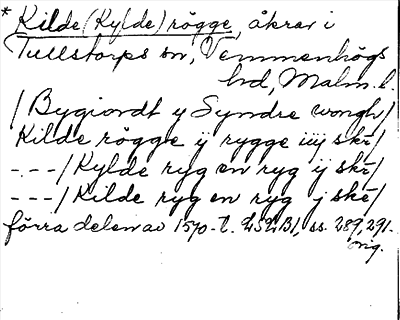 * Kilde (Kylde) rögge, åkrar i
Tullstorps sn, Vemmenhögs
hrd, Malm. l.
/ Bygiordt y Syndre wongh /
Kilde rögge ÿ rygge iiÿ skr /
-.-- / Kylde ryg en ryg ÿ skr /
--- / Kilde ryg en ryg j skr /
förra delen av 1570-t. ss. 289, 291.
orig.